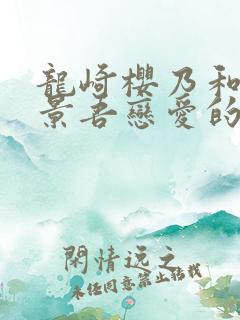 龍崎櫻乃和
景吾戀愛的
閑情遠之
未經同意禁止轉載